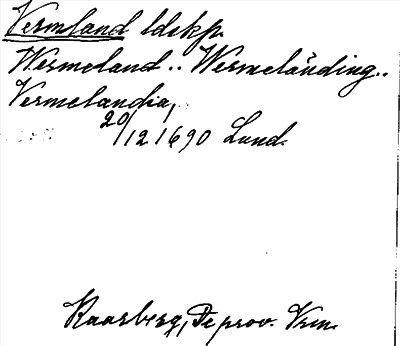 Vermland ldskp.
Wermeland.. Wermeländing..
Vermelandia,
20/12 1690 Lund.
Kaarberg, De prov. Vrm.